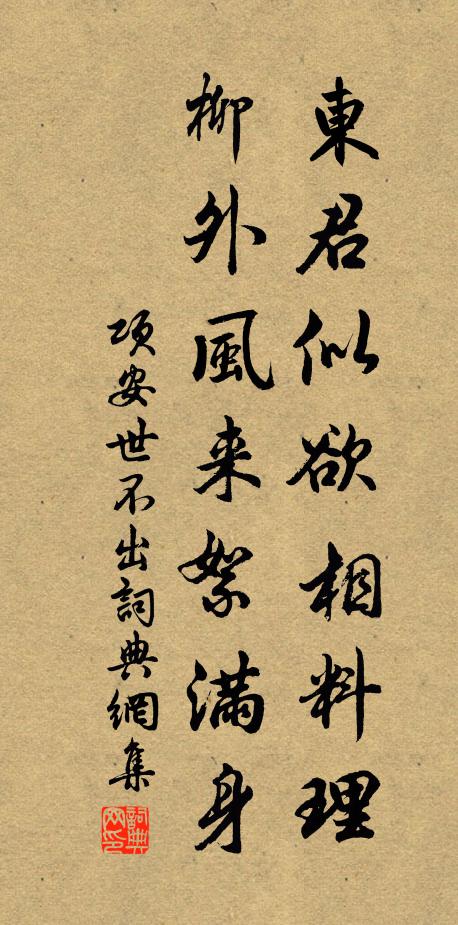 東君似欲相料理
柳外風来絮滿身
项安世不出詞典網集
詞典網印